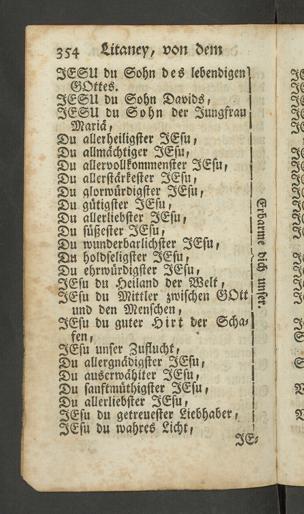 354 Litaney, von dem
JESU du Sohn des lebendigen
GOttes.
JESU du Sohn Davids,
JESU du Sohn der Jungfrau
Mariä,
Du allerheiligster JEsu,
Du allmächtiger JEsu,
Du allervollkommenster JEsu,
Du allerstärkester JEsu,
Du glorwürdigster JEsu,
Du gütigster JEsu,
Du allerliebster JEsu,
Du süßester JEsu,
Du wunderbarlichster JEsu,
Du holdseligster JEsu,
Du ehrwürdigster JEsu,
JEsu du Heiland der Welt,
JEsu du Mittler zwischen GOtt
und den Menschen,
JEsu du guter Hirt der Scha-
fen,
JEsu unser Zuflucht,
Du allergnädigster JEsu,
Du auserwählter JEsu,
Du sanftmüthigster JEsu,
Du allerliebster JEsu,
JEsu du getreuester Liebhaber,
JEsu du wahres Licht,
Erbarme dich unser.
JE-